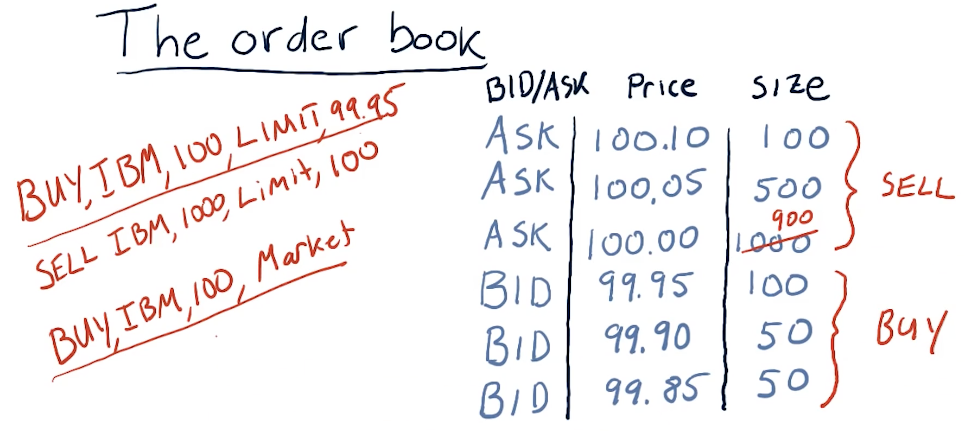 The order book
BUY, IBM, 100, LIMIT, 99.95
SELL IBM, 1000, Limit, 100
BUY, IBM, 100, Market
BID/ASK Price SIZE
ASK 100.10 100
ASK 100.05 500
SELL
900
ASK 100.00 1000
BID 99.95 100
BID 99.90 50
BUY
BID 99.85 50